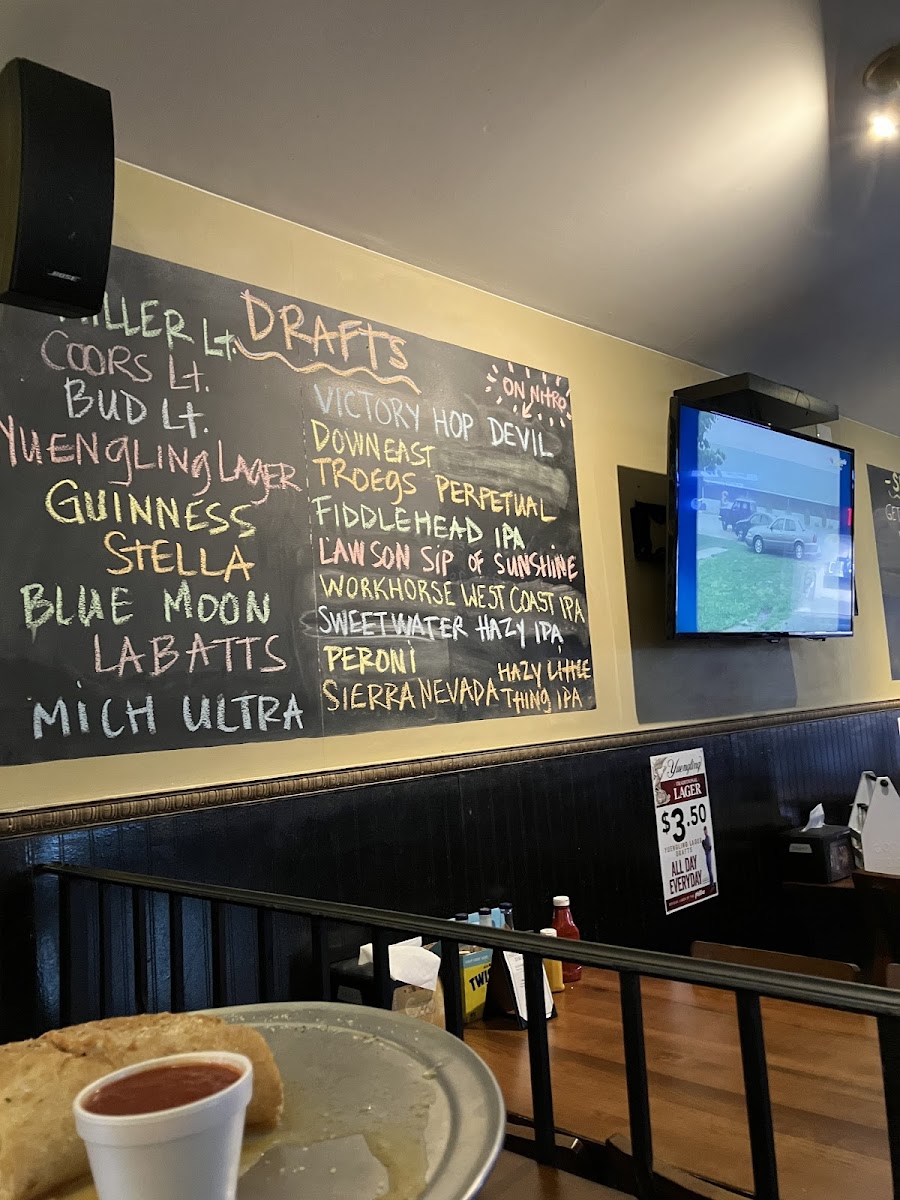 BOSE
DRAFTS
MILLER Lt.
COORS Lt.
BUD Lt.
YUENGLING LAGER
GUINNESS
STELLA
BLUE MOON
LABATTS
MICH ULTRA
ON NITRO
VICTORY HOP DEVIL
DOWNEAST
TROEGS PERPETUAL
FIDDLEHEAD IPA
LAWSON SIP OF SUNSHINE
WORKHORSE WEST COAST IPA
SWEETWATER HAZY IPA
PERONI
SIERRA NEVADA HAZY LITTLE
THING IPA
Yuengling
TRADITIONAL
LAGER
$3.50
YUENGLING LAGER
DRAFTS
ALL DAY
EVERYDAY